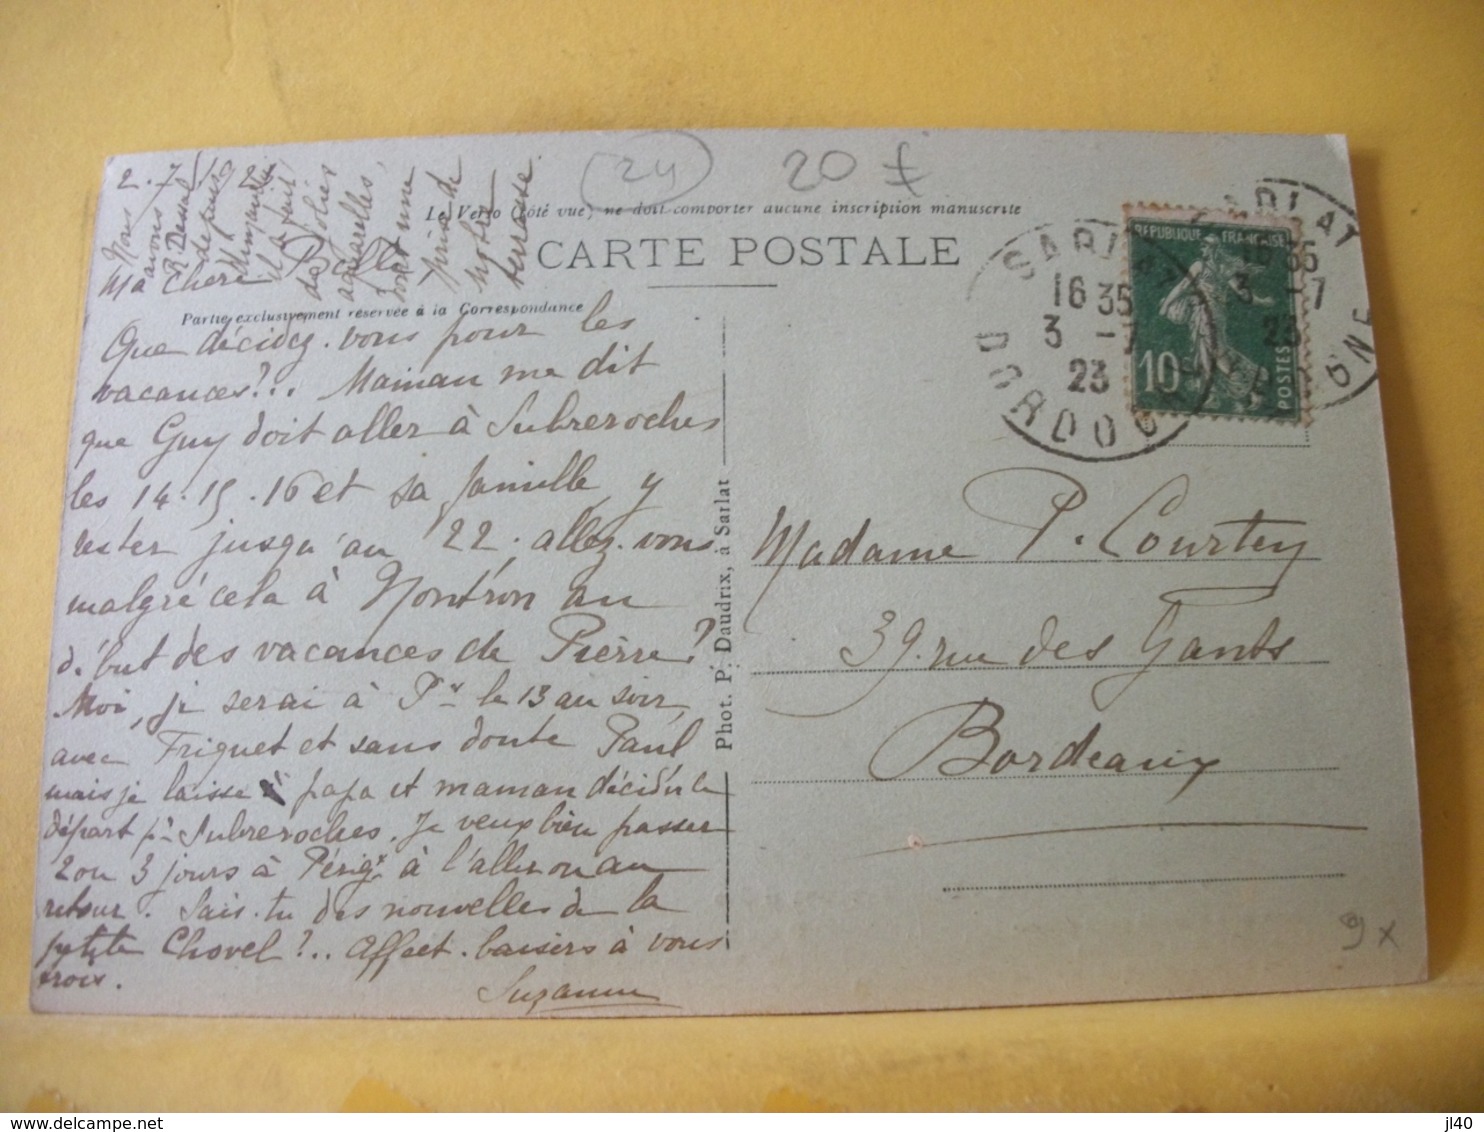 (24) 20 f
Le Verso (côté vue) ne doit comporter aucune inscription manuscrite
CARTE POSTALE
Partie exclusivement réservée à la Correspondance
2.7.
Nous
avons
R Dessal
depuis
il a fait
de jolies
aquarelles,
dont une
prise de
notre
terrasse
Ma Chère
Que décidez-vous pour les
vacances?.. Maman me dit
que Guy doit aller à Subreroches
les 14.15.16 et sa famille y
rester jusqu'au 22. allez-vous
malgré cela à Montron au
début des vacances de Pierre?
Moi, je serai à Px le 13 au soir,
avec Friquet et sans doute Paul
mais je laisse à papa et maman décider le
départ pr Subreroches. Je veux bien passer
2 ou 3 jours à Périgx à l'aller ou au
retour. Sais-tu des nouvelles de la
petite Chovel?.. Affect. baisers à vous
trois.
Suzanne
Phot. P. Daudrix, à Sarlat
SARLAT
16 35
3 -7
23
DORDOGNE
SARLAT
16 35
3 -7
23
DORDOGNE
REPUBLIQUE FRANÇAISE
10c
POSTES
Madame P. Courtey
39. rue des Gants
Bordeaux
9x
jl40